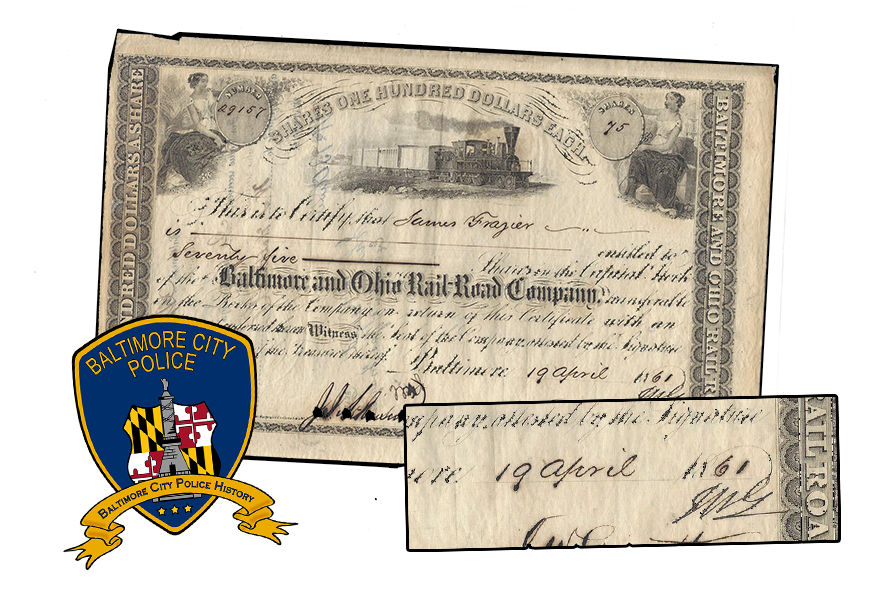 NUMBER
29157
SHARES ONE HUNDRED DOLLARS EACH.
SHARES
75
HUNDRED DOLLARS A SHARE
BALTIMORE AND OHIO RAIL R
This is to Certify, that James Frazier
is entitled to
Seventy five Shares in the Capital Stock
of the Baltimore and Ohio Rail-Road Company, transferable
on the Books of the Company on return of this Certificate with an
Witness the Seal of the Company attested by the Signature
of the Treasurer
Baltimore 19 April 1861
BALTIMORE CITY
POLICE
BALTIMORE CITY POLICE HISTORY
mpany attested by the Signature
more 19 April 1861
AIL ROA